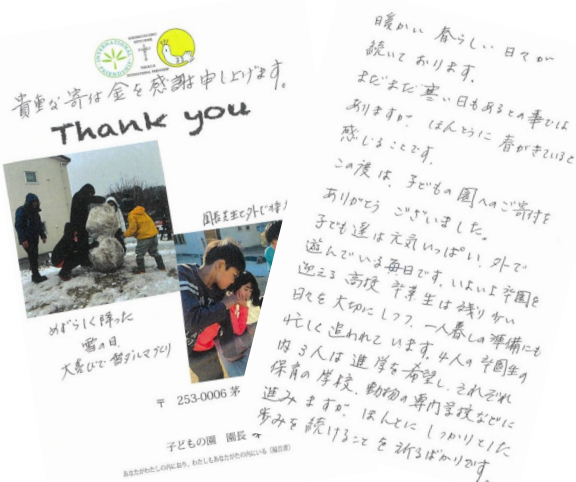 貴重な寄付金を感謝申し上げます。
Thank you
園長先生と外で
めずらしく降った
雪の日
大喜びで雪ダルマづくり
〒 253-0006 茅
子どもの園 園長
あなたがわたしの内におり、わたしもあなたがたの内にいる
暖かい 春らしい 日々が
続いております。
まだまだ寒い日もあるとの事では
ありますが、ほんとうに 春がきていると
感じることです。
この度は、子どもの園へのご寄付を
ありがとう ございました。
子ども達は元気いっぱい、外で
遊んでいる毎日です。いよいよ卒園を
迎える 高校 卒業生は残り少い
日々を大切にしつつ、一人暮しの準備にも
忙しく追われています。4人の卒園生の
内3人は進学を希望し、それぞれ
保育の学校、動物の専門学校などに
進みますが、ほんとに しっかりとした
歩みを続けることを祈るばかりです。